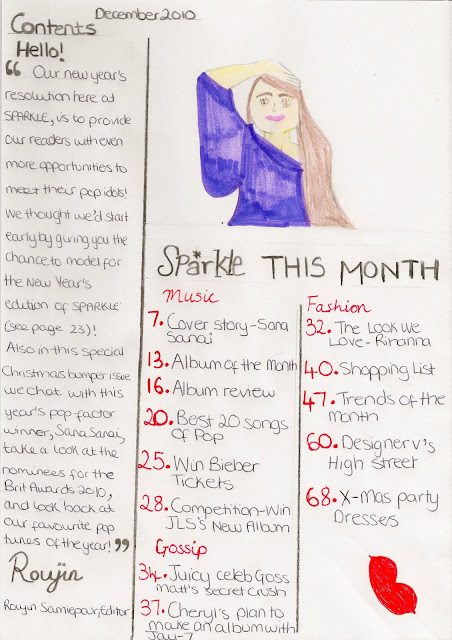 December 2010
Contents
Hello!
“ Our new year's
resolution here at
SPARKLE, is to provide
our readers with even
more opportunities to
meet their pop idols!
We thought we'd start
early by giving you the
chance to model for
the New Year's
edition of SPARKLE
(see page 23)!
Also in this special
Christmas bumper issue
we chat with this
year's pop-factor
winner, Sana Sanai,
take a look at the
nominees for the
Brit Awards 2010,
and look back at
our favourite pop
tunes of the year! ”
Roujin
Roujin Samiepour, Editor
Sparkle THIS MONTH
Music
7. Cover story-Sana
Sanai
13. Album of the month
16. Album review
20. Best 20 songs
of Pop
25. Win Bieber
Tickets
28. Competition-Win
JLS's New Album
Gossip
34. Juicy celeb Goss
matt's secret crush
37. Cheryl's plan to
make an album with
Jay-Z
Fashion
32. The Look We
Love-Rihanna
40. Shopping List
47. Trends of the
month
60. Designer v's
High street
68. X-Mas party
Dresses